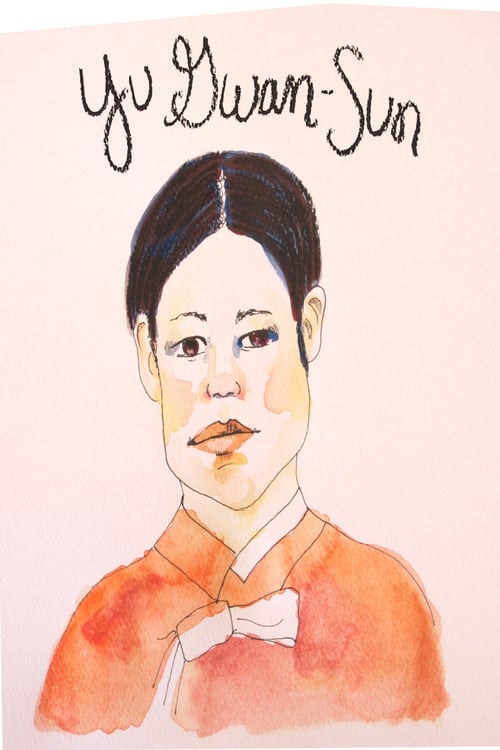 Yu Gwan-Sun